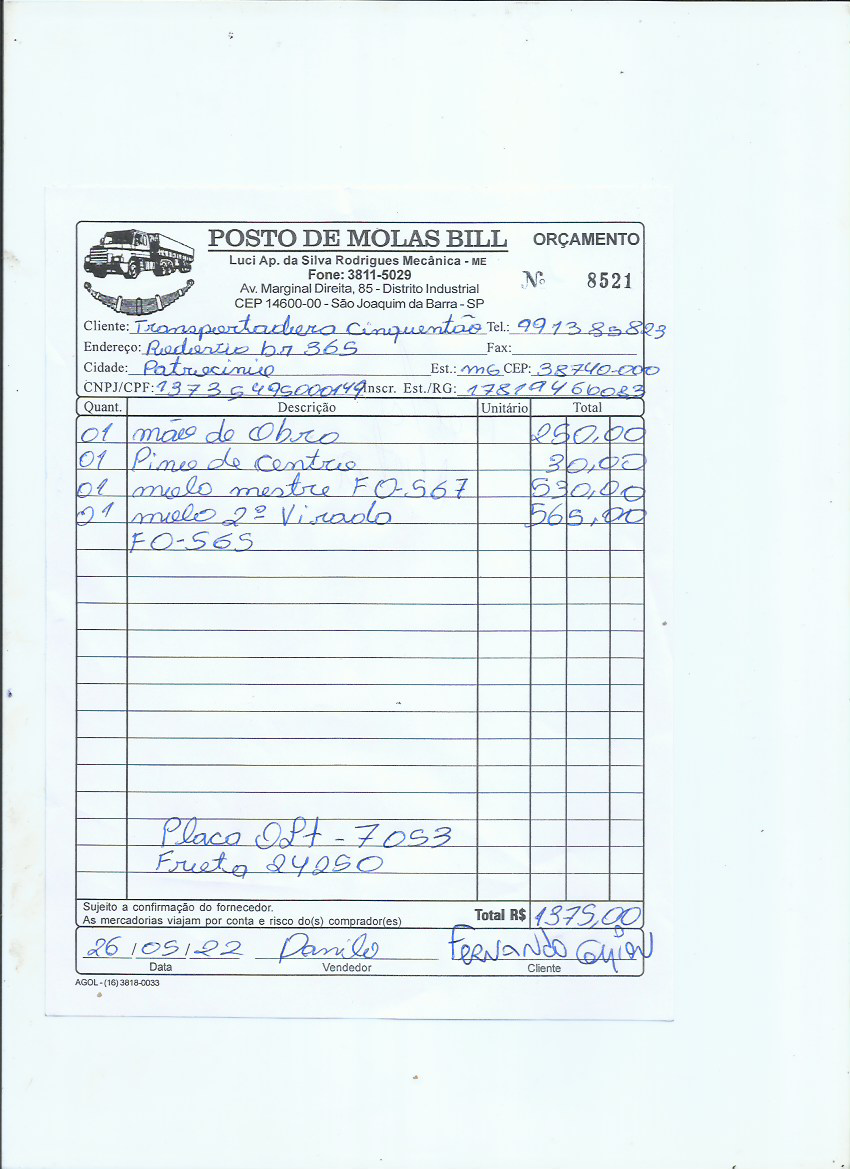 POSTO DE MOLAS BILL ORÇAMENTO
Luci Ap. da Silva Rodrigues Mecânica - ME
Fone: 3811-5029
Nº 8521
Av. Marginal Direita, 85 - Distrito Industrial
CEP 14600-00 - São Joaquim da Barra - SP
Cliente: Transportadora Cinquentão Tel.: 991385823
Endereço: Rodovia br 365 Fax:
Cidade: Patrocinio Est.: MG CEP: 38740-000
CNPJ/CPF: 13735495000149 Inscr. Est./RG: 17819466083
Quant. Descrição Unitário Total
01 mão de Obra 250,00
01 Pino de centro 30,00
01 mola mestre FO-567 530,00
01 mola 2º Virada 565,00
FO-565
Placa OLt - 7053
Frota 24250
Sujeito a confirmação do fornecedor.
As mercadorias viajam por conta e risco do(s) comprador(es)
Total R$ 1375,00
26/05/22 Danilo FERNANDO
Data Vendedor Cliente
AGOL - (16) 3818-0033